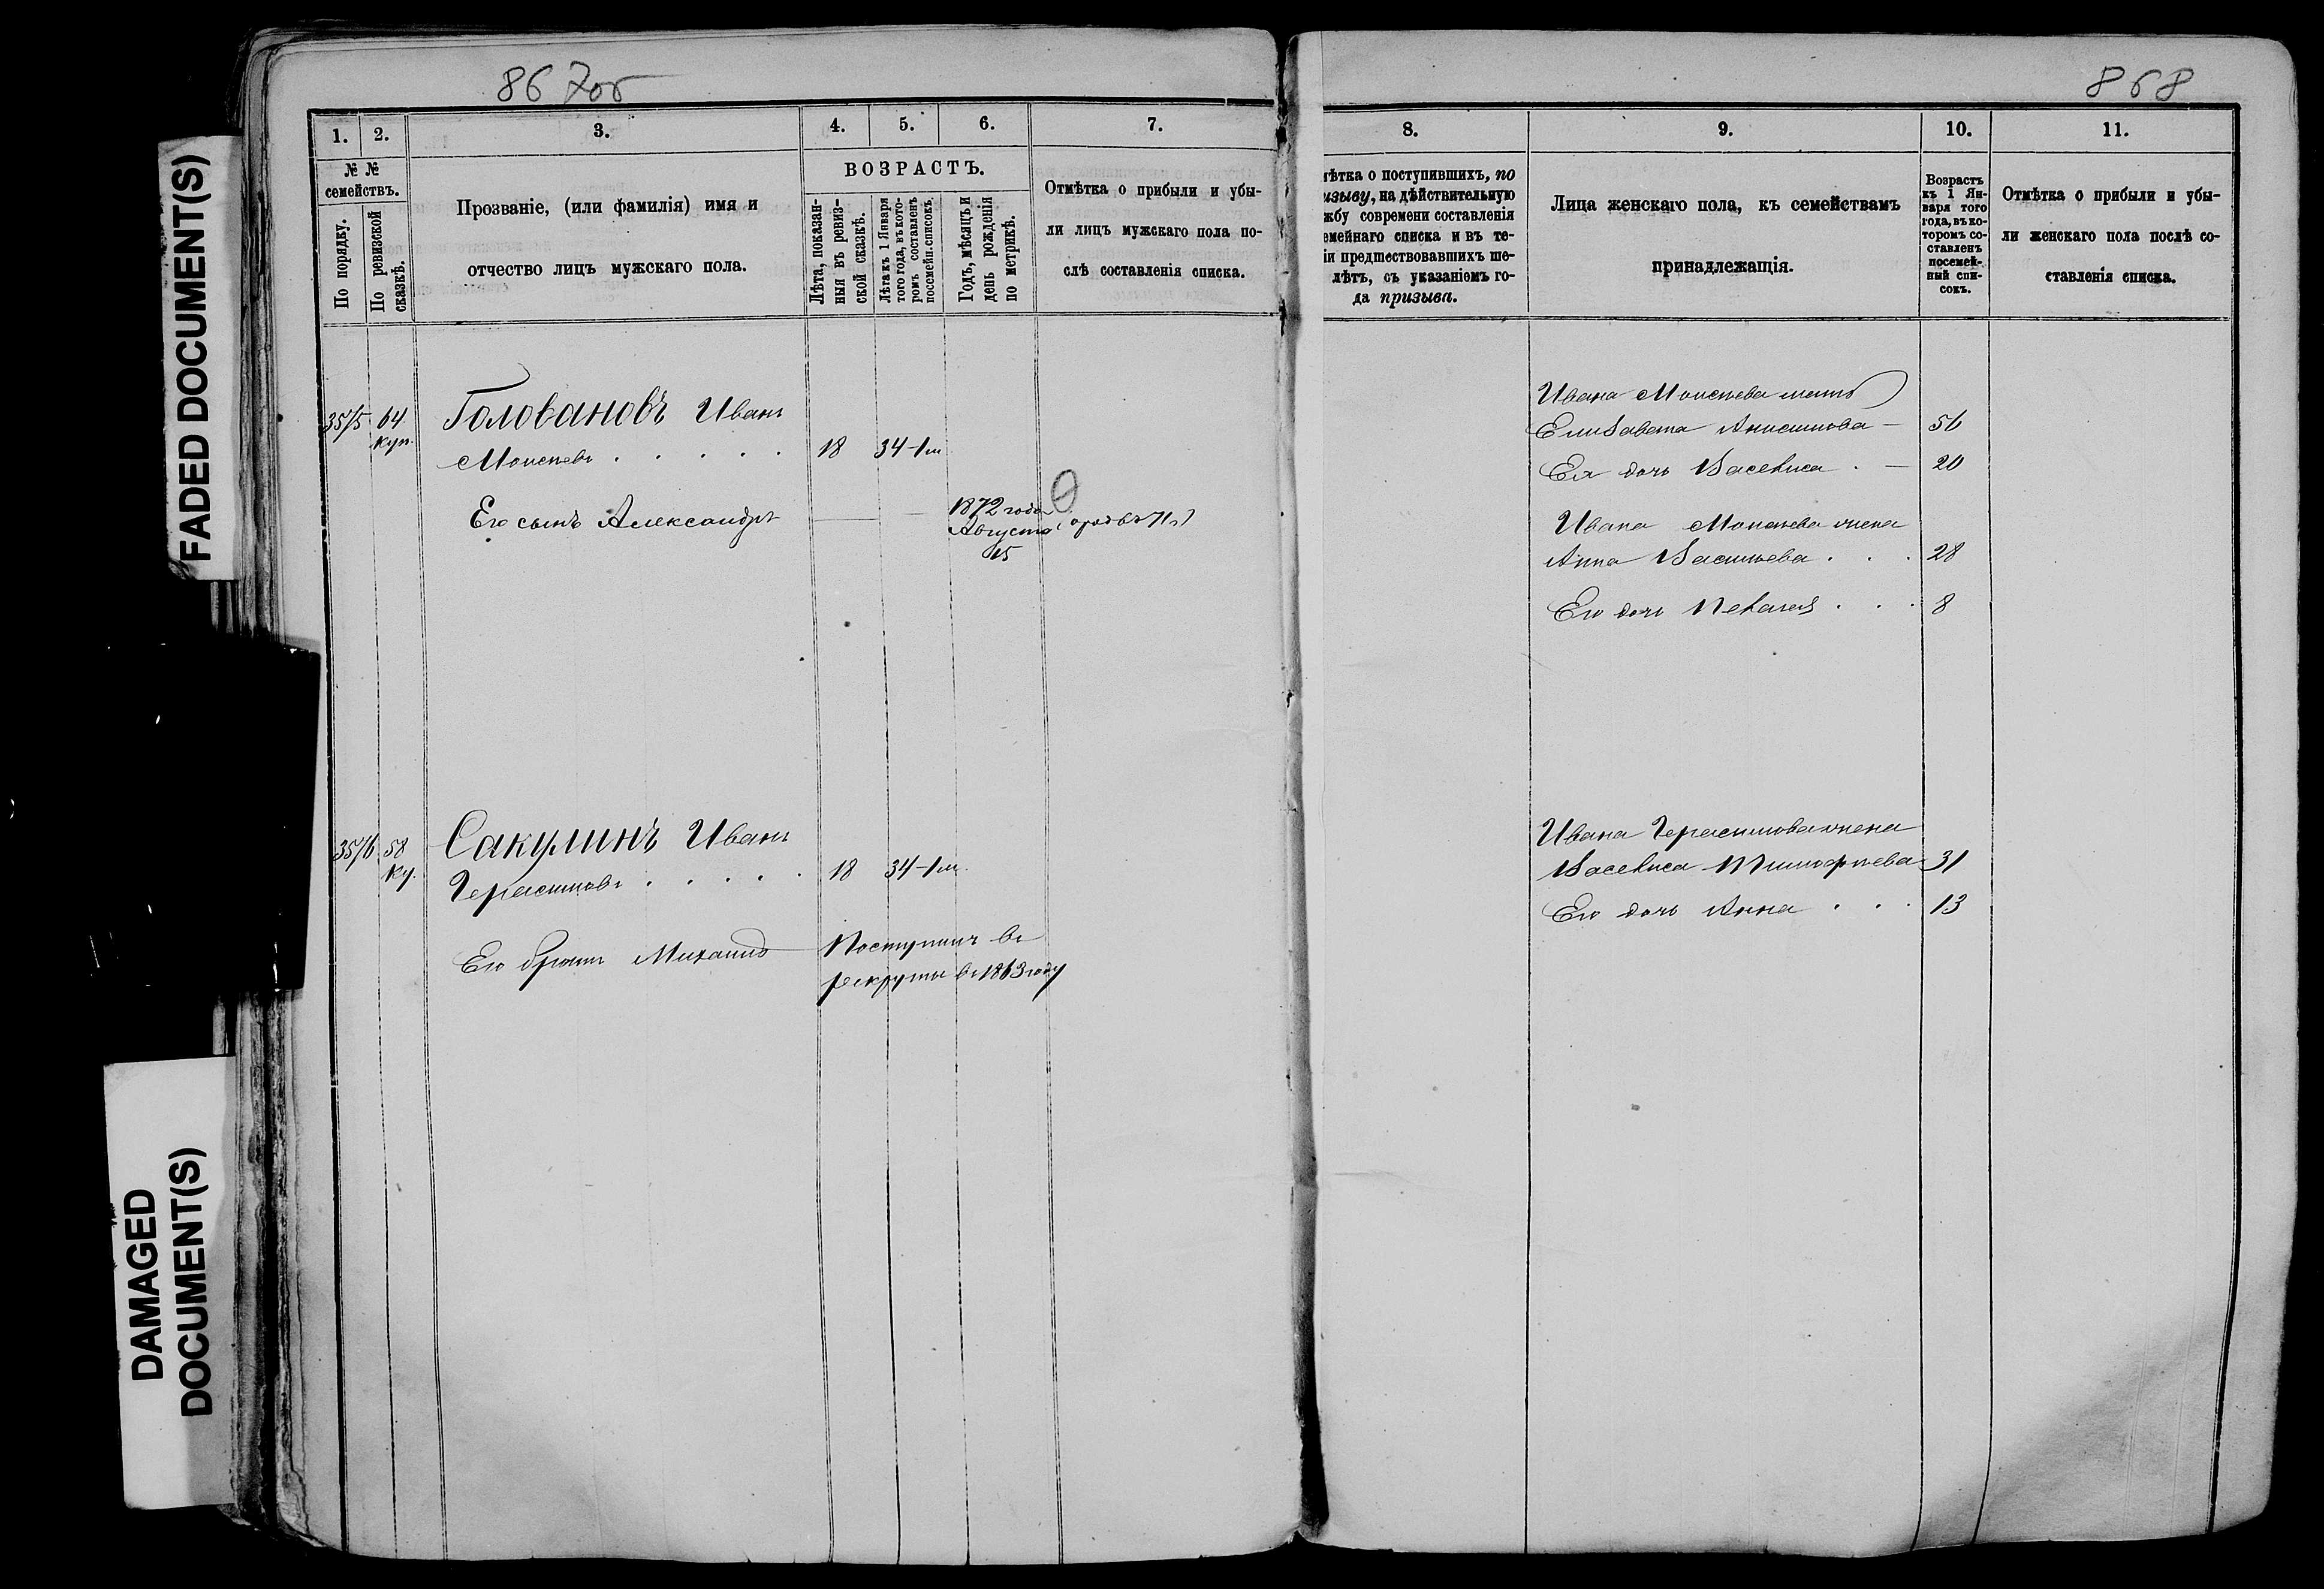 FADED DOCUMENT(S)
DAMAGED
DOCUMENT(S)
867об
1. 2. 3. 4. 5. 6. 7.
№ №
семействъ.
По порядку.
По ревизской
сказкѣ.
Прозваніе, (или фамилія) имя и
отчество лицъ мужскаго пола.
ВОЗРАСТЪ.
Лѣта, показан-
ныя въ ревиз-
ской сказкѣ.
Лѣта къ 1 Января
того года, въ кото-
ромъ составленъ
посемейн. списокъ.
Годъ, мѣсяцъ и
день рожденія
по метрикѣ.
Отмѣтка о прибыли и убы-
ли лицъ мужскаго пола по-
слѣ составленія списка.
35/5 64 Головановъ Иванъ
куп. Моисеевъ . . . . . 18 34-1м
Его сынъ Александръ — — 1872 года
Августа
15
35/6 58 Сакулинъ Иванъ
ку. Герасимовъ . . . . . 18 34-1м.
Его братъ Михаилъ Поступилъ въ
рекруты въ 1863 году
868
8. 9. 10. 11.
ѣтка о поступившихъ, по
изыву, на дѣйствительную
жбу современи составленія
емейнаго списка и въ те-
іи предшествовавшихъ ше-
лѣтъ, съ указаніемъ го-
да призыва.
Лица женскаго пола, къ семействамъ
принадлежащія.
Возрастъ
къ 1 Ян-
варя того
года, въ ко-
торомъ со-
ставленъ
посемей-
ный спи-
сокъ.
Отмѣтка о прибыли и убы-
ли женскаго пола послѣ со-
ставленія списка.
Ивана Моисеева мать
Елизавета Анисимова — 56
Ея дочь Васелиса . — 20
Ивана Моисеева жена
Анна Васильева . . . 28
Его дочь Пелагея . . . 8
Ивана Герасимова жена
Васелиса Тимофѣева 31
Его дочь Анна . . . 13